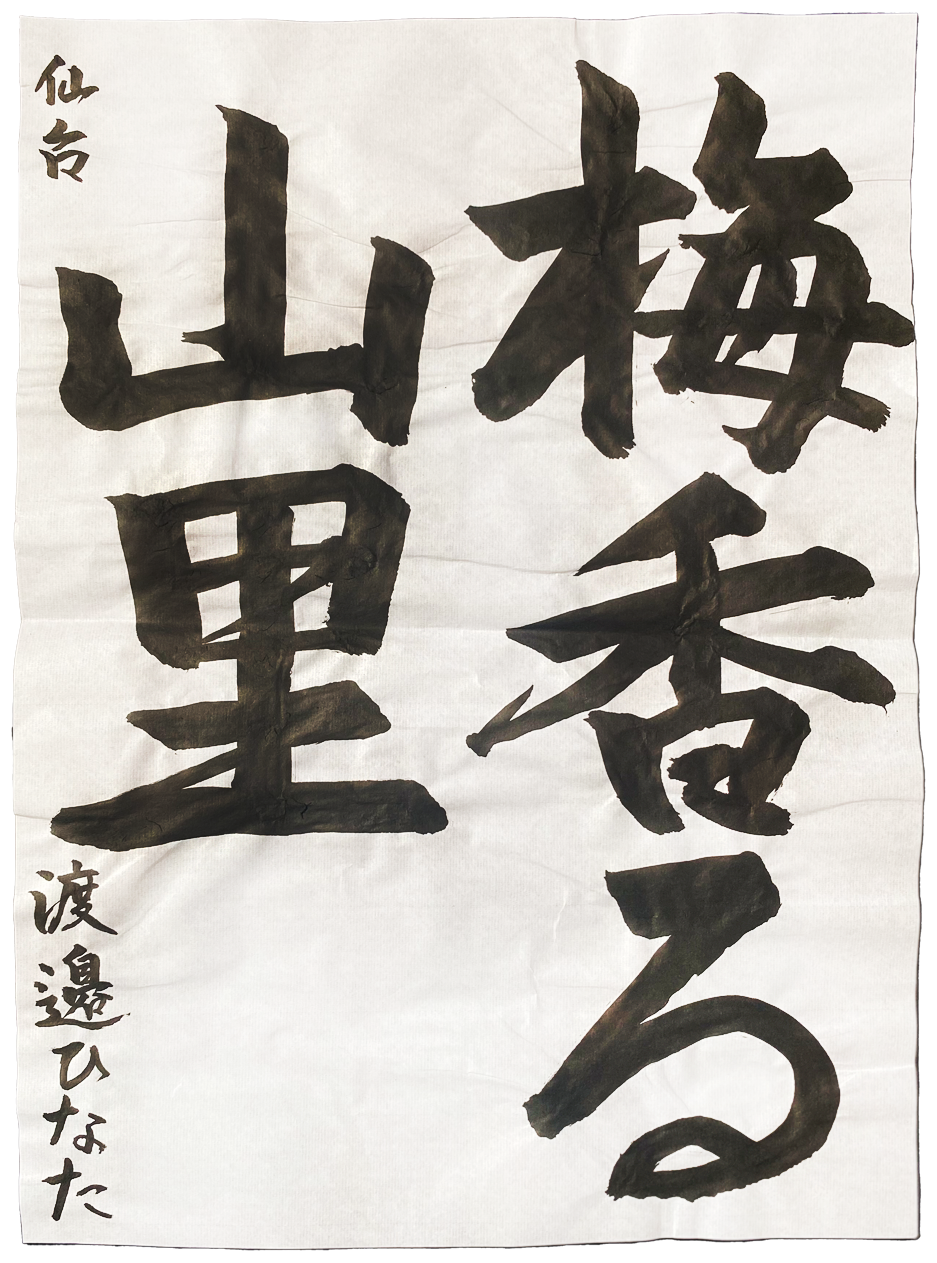 梅香る
山里
仙台
渡邉ひなた